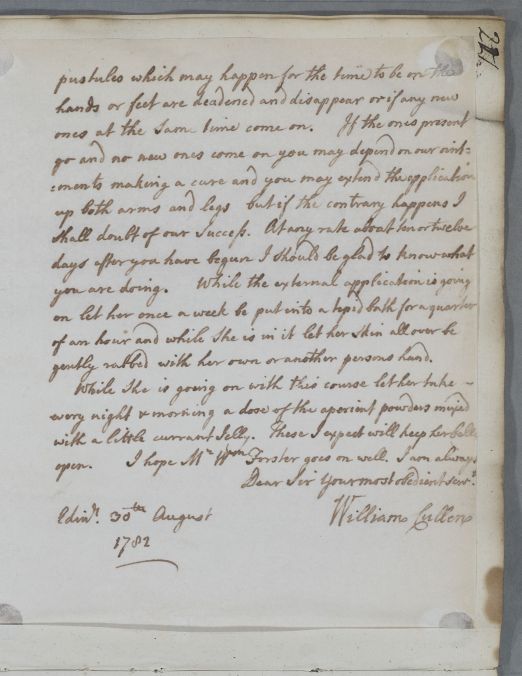 221.
pustules which may happen for the time to be on the
hands or feet are deadened and disappear or if any new
ones at the same time come on. If the ones present
go and no new ones come on you may depend on our oint:
:ments making a cure and you may extend the application
up both arms and legs but if the contrary happens I
shall doubt of our success. At any rate about ten or twelve
days after you have begun I should be glad to know what
you are doing. While the external application is going
on let her once a week be put into a tepid bath for a quarter
of an hour and while she is in it let her skin all over be
gently rubbed with her own or another persons hand.
While she is going on with this course let her take
every night & morning a dose of the aperient powders mixed
with a little currant Jelly. These I expect will keep her belly
open. I hope Mr Wm Forster goes on well. I am always
Dear Sir your most obedient servt
Edinr. 30th August
William Cullen
1782